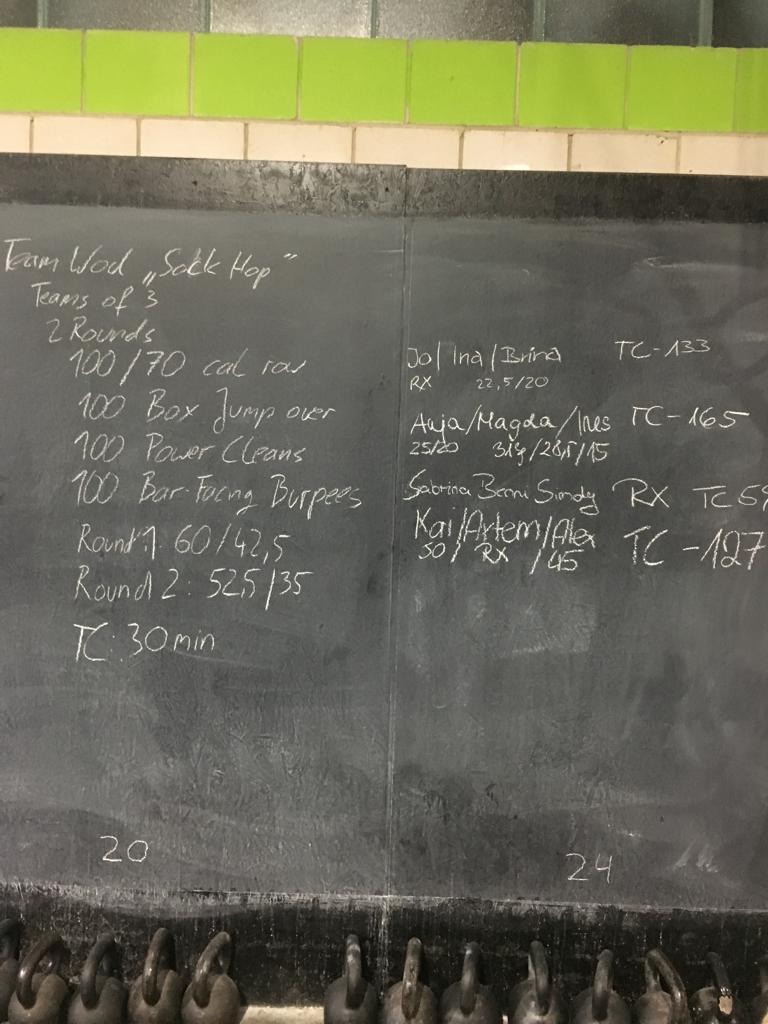 Team Wod „Sock Hop"
Teams of 3
2 Rounds
100/70 cal row
100 Box Jump over
100 Power Cleans
100 Bar-Facing Burpees
Round 1: 60/42,5
Round 2: 52,5/35
TC: 30min
20
Jo/Ina/Brina TC-133
RX 22,5/20
Anja/Magda/Ines TC-165
25/20 /15
Sabrina RX TC 59
Kai/Artem/Alex TC-127
50/ RX /45
24